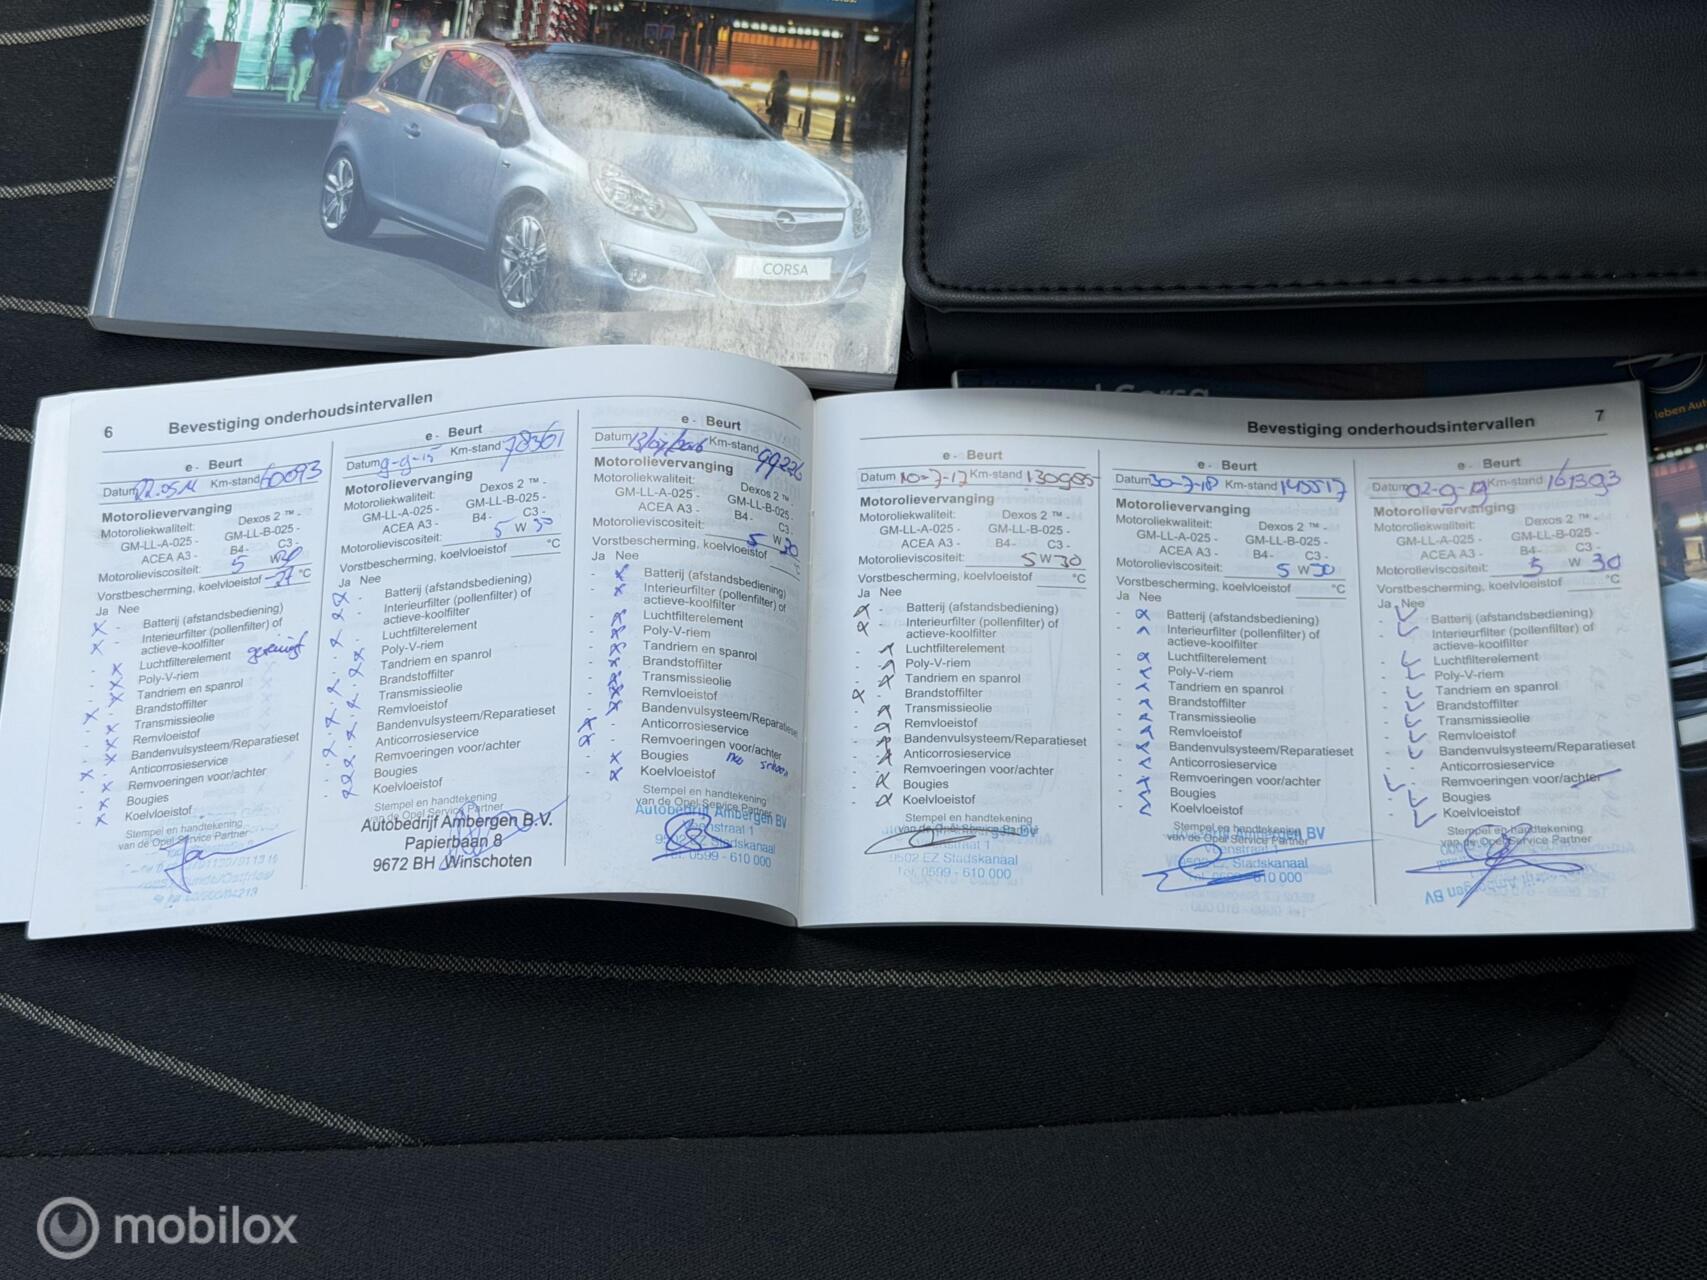 CORSA
Corsa
leben Aut
6
Bevestiging onderhoudsintervallen
e - Beurt
Datum 22.05.14 Km-stand 60093
Motorolievervanging
Motoroliekwaliteit: Dexos 2 ™ -
GM-LL-A-025 - GM-LL-B-025 -
ACEA A3 - B4- C3 -
Motorolieviscositeit: 5 W
Vorstbescherming, koelvloeistof -27 °C
Ja Nee
Batterij (afstandsbediening)
Interieurfilter (pollenfilter) of
actieve-koolfilter
Luchtfilterelement gereinigt
Poly-V-riem
Tandriem en spanrol
Brandstoffilter
Transmissieolie
Remvloeistof
Bandenvulsysteem/Reparatieset
Anticorrosieservice
Remvoeringen voor/achter
Bougies
Koelvloeistof
Stempel en handtekening
van de Opel Service Partner
e - Beurt
Datum 9-9-15 Km-stand 78361
Motorolievervanging
Motoroliekwaliteit: Dexos 2 ™ -
GM-LL-A-025 - GM-LL-B-025 -
ACEA A3 - B4- C3 -
Motorolieviscositeit: 5 W 30
Vorstbescherming, koelvloeistof °C
Ja Nee
Batterij (afstandsbediening)
Interieurfilter (pollenfilter) of
actieve-koolfilter
Luchtfilterelement
Poly-V-riem
Tandriem en spanrol
Brandstoffilter
Transmissieolie
Remvloeistof
Bandenvulsysteem/Reparatieset
Anticorrosieservice
Remvoeringen voor/achter
Bougies
Koelvloeistof
Stempel en handtekening
van de Opel Service Partner
Autobedrijf Ambergen B.V.
Papierbaan 8
9672 BH Winschoten
e - Beurt
Datum 13/07/2016 Km-stand 99226
Motorolievervanging
Motoroliekwaliteit: Dexos 2 ™ -
GM-LL-A-025 - GM-LL-B-025 -
ACEA A3 - B4- C3 -
Motorolieviscositeit: 5 W 30
Vorstbescherming, koelvloeistof
Ja Nee
Batterij (afstandsbediening)
Interieurfilter (pollenfilter) of
actieve-koolfilter
Luchtfilterelement
Poly-V-riem
Tandriem en spanrol
Brandstoffilter
Transmissieolie
Remvloeistof
Bandenvulsysteem/Reparatieset
Anticorrosieservice
Remvoeringen voor/achter
Bougies
Koelvloeistof
Stempel en handtekening
van de Opel Service Partner
Autobedrijf Ambergen BV
Veenstraat 1
9502 EZ Stadskanaal
Tel. 0599 - 610 000
Bevestiging onderhoudsintervallen
7
e - Beurt
Datum 10-7-17 Km-stand 130985
Motorolievervanging
Motoroliekwaliteit: Dexos 2 ™ -
GM-LL-A-025 - GM-LL-B-025 -
ACEA A3 - B4- C3 -
Motorolieviscositeit: 5 W 30
Vorstbescherming, koelvloeistof °C
Ja Nee
Batterij (afstandsbediening)
Interieurfilter (pollenfilter) of
actieve-koolfilter
Luchtfilterelement
Poly-V-riem
Tandriem en spanrol
Brandstoffilter
Transmissieolie
Remvloeistof
Bandenvulsysteem/Reparatieset
Anticorrosieservice
Remvoeringen voor/achter
Bougies
Koelvloeistof
Stempel en handtekening
van de Opel Service Partner
9502 EZ Stadskanaal
Tel. 0599 - 610 000
e - Beurt
Datum 30-7-18 Km-stand 145517
Motorolievervanging
Motoroliekwaliteit: Dexos 2 ™ -
GM-LL-A-025 - GM-LL-B-025 -
ACEA A3 - B4- C3 -
Motorolieviscositeit: 5 W 30
Vorstbescherming, koelvloeistof °C
Ja Nee
Batterij (afstandsbediening)
Interieurfilter (pollenfilter) of
actieve-koolfilter
Luchtfilterelement
Poly-V-riem
Tandriem en spanrol
Brandstoffilter
Transmissieolie
Remvloeistof
Bandenvulsysteem/Reparatieset
Anticorrosieservice
Remvoeringen voor/achter
Bougies
Koelvloeistof
Stempel en handtekening
van de Opel Service Partner
Ambergen BV
Veenstraat 1
9502 EZ Stadskanaal
610 000
e - Beurt
Datum 02-9-19 Km-stand 161393
Motorolievervanging
Motoroliekwaliteit: Dexos 2 ™ -
GM-LL-A-025 - GM-LL-B-025 -
ACEA A3 - B4- C3 -
Motorolieviscositeit: 5 W 30
Vorstbescherming, koelvloeistof °C
Ja Nee
Batterij (afstandsbediening)
Interieurfilter (pollenfilter) of
actieve-koolfilter
Luchtfilterelement
Poly-V-riem
Tandriem en spanrol
Brandstoffilter
Transmissieolie
Remvloeistof
Bandenvulsysteem/Reparatieset
Anticorrosieservice
Remvoeringen voor/achter
Bougies
Koelvloeistof
Stempel en handtekening
van de Opel Service Partner
mobilox